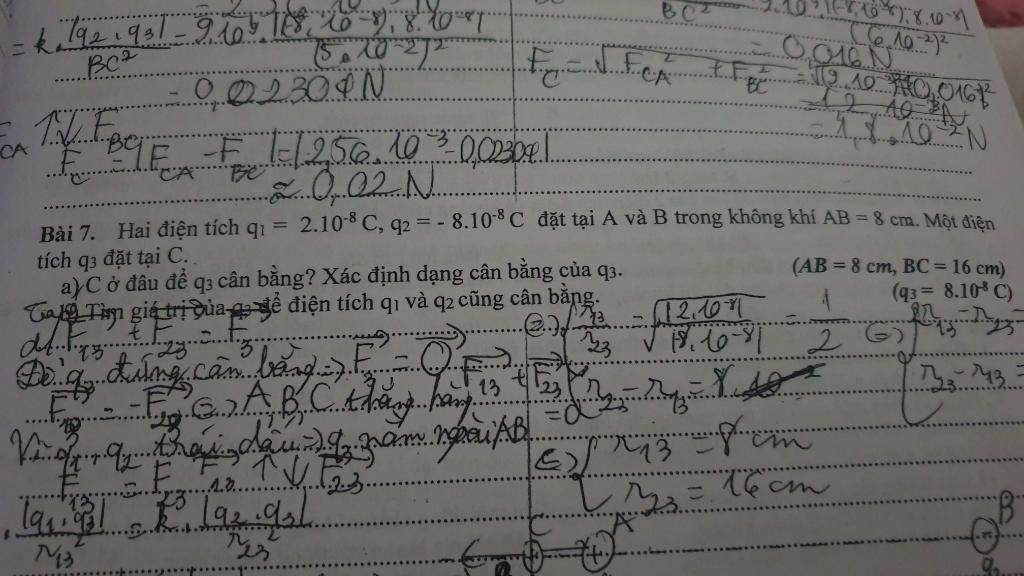 = k. |q2.q3| / BC² = 9.10⁹. |(-8.10⁻⁸).8.10⁻⁸| / (5.10⁻²)²
= 0,02304N
F CA ↑↓ F BC
F C = |F CA - F BC| = |2,56.10⁻³ - 0,02304|
≈ 0,02 N
BC² (6.10⁻²)²
= 0,016N
F C = √F CA² + F BC²
= 1,8.10⁻²N
Bài 7. Hai điện tích q1 = 2.10⁻⁸ C, q2 = - 8.10⁻⁸ C đặt tại A và B trong không khí AB = 8 cm. Một điện
tích q3 đặt tại C.
a) C ở đâu để q3 cân bằng? Xác định dạng cân bằng của q3.
(AB = 8 cm, BC = 16 cm)
Tìm giá trị của q3 để điện tích q1 và q2 cũng cân bằng.
(q3 = 8.10⁻⁸ C)
F13 + F23 = F3
Để q3 đứng cân bằng => F3 = O
F13 + F23 = O
F13 = -F23 <=> A, B, C thẳng hàng
Vì q1, q2 trái dấu => q3 nằm ngoài AB
F13 ↑↓ F23
F13 = F23
|q1.q3| / r13² = k. |q2.q3| / r23²
r13 / r23 = √|2.10⁻⁸| / √|8.10⁻⁸| = 1 / 2
r23 - r13 = 8
<=> r13 = 8 cm
r23 = 16 cm
r23 - r13 =
C A B